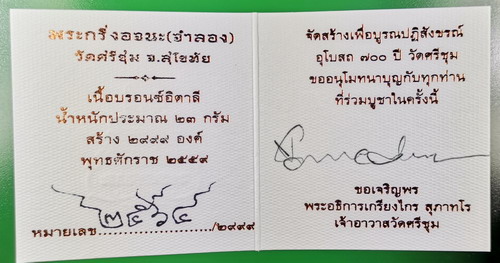 พระกริ่งอจนะ(จำลอง)
วัดศรีชุม จ.สุโขทัย
เนื้อบรอนซ์อิตาลี
น้ำหนักประมาณ ๒๓ กรัม
สร้าง ๒๙๙๙ องค์
พุทธศักราช ๒๕๕๙
๒๕๖๔
หมายเลข............................/๒๙๙๙
จัดสร้างเพื่อบูรณปฏิสังขรณ์
อุโบสถ ๗๐๐ ปี วัดศรีชุม
ขออนุโมทนาบุญกับทุกท่าน
ที่ร่วมบูชาในครั้งนี้
ขอเจริญพร
พระอธิการเกรียงไกร สุภาทโร
เจ้าอาวาสวัดศรีชุม